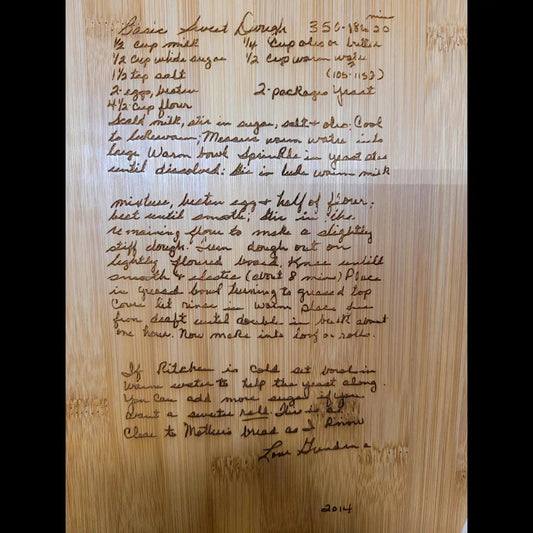 Basic Sweet Dough 350-18 to 20 min
1/2 cup milk 1/4 cup oleo or butter
1/2 cup white sugar 1/2 cup warm water
1 1/2 tsp salt (105-115?)
2-eggs, beaten 2-packages Yeast
4 1/2 cup flour
Scald milk, stir in sugar, salt & oleo. Cool
to lukewarm; Measure warm water into
large Warm bowl Sprinkle in yeast
until dissolved: Stir in luke warm milk
mixture, beaten egg & half of flour;
beat until smooth; Stir in the
remaining flour to make a slightly
stiff dough. Turn dough out on
lightly floured board. Knee untill
smooth & elastic (about 8 min) Place
in greased bowl turning to greased top
Cover let rise in warm place
from draft until double in bulk about
one hour. Now make into loaf or rolls.
If Kitchen is cold set bowl in
warm water to help the yeast along.
You can add more sugar if you
want a sweeter roll. This is
Close to Mothers bread as I know
Love
2014